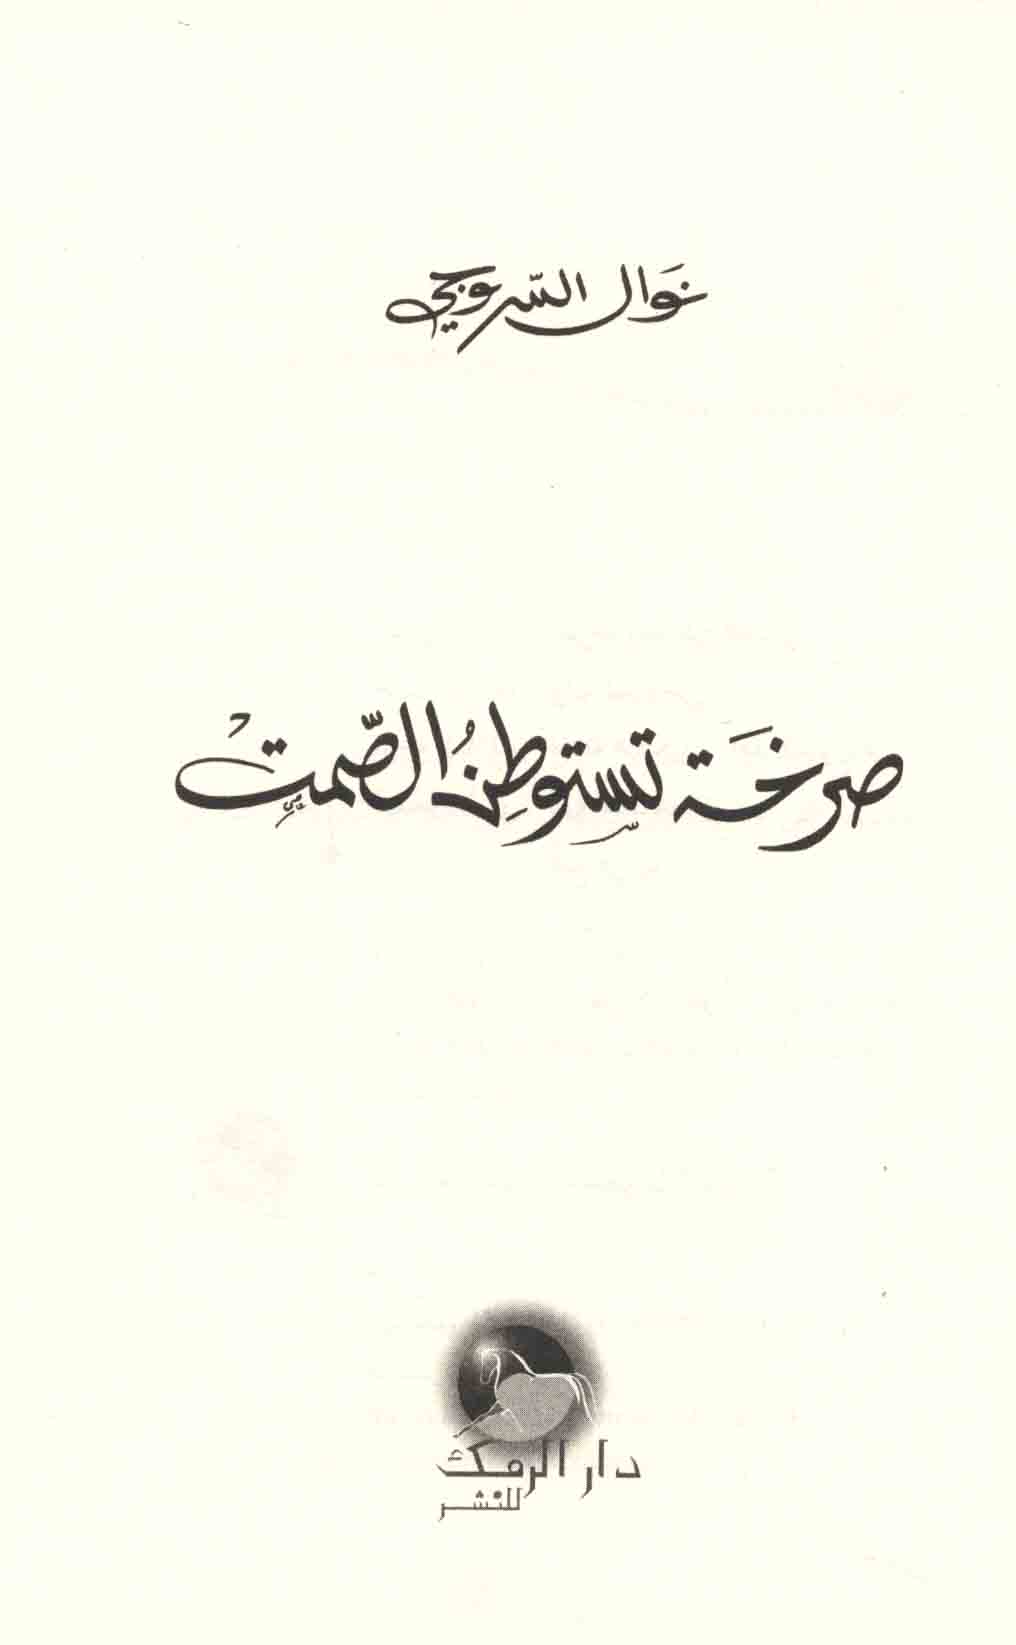 نَوال السّروجي
صرخَة تستوطِنُ الصّمتْ
دار الرمك
للنشر